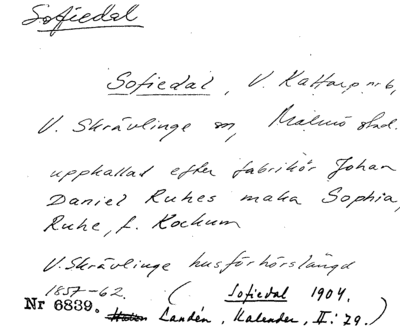 Sofiedal
Sofiedal, V. Kattarp nr 6,
V. Skrävlinge sn, Malmö stad.
uppkallad efter fabrikör Johan
Daniel Ruhes maka Sophia
Ruhe, f. Kockum
V. Skrävlinge husförhörslängd
1857-62. ( Sofiedal 1904.
Nr 6839. Landén, Kalender, II: 79.)